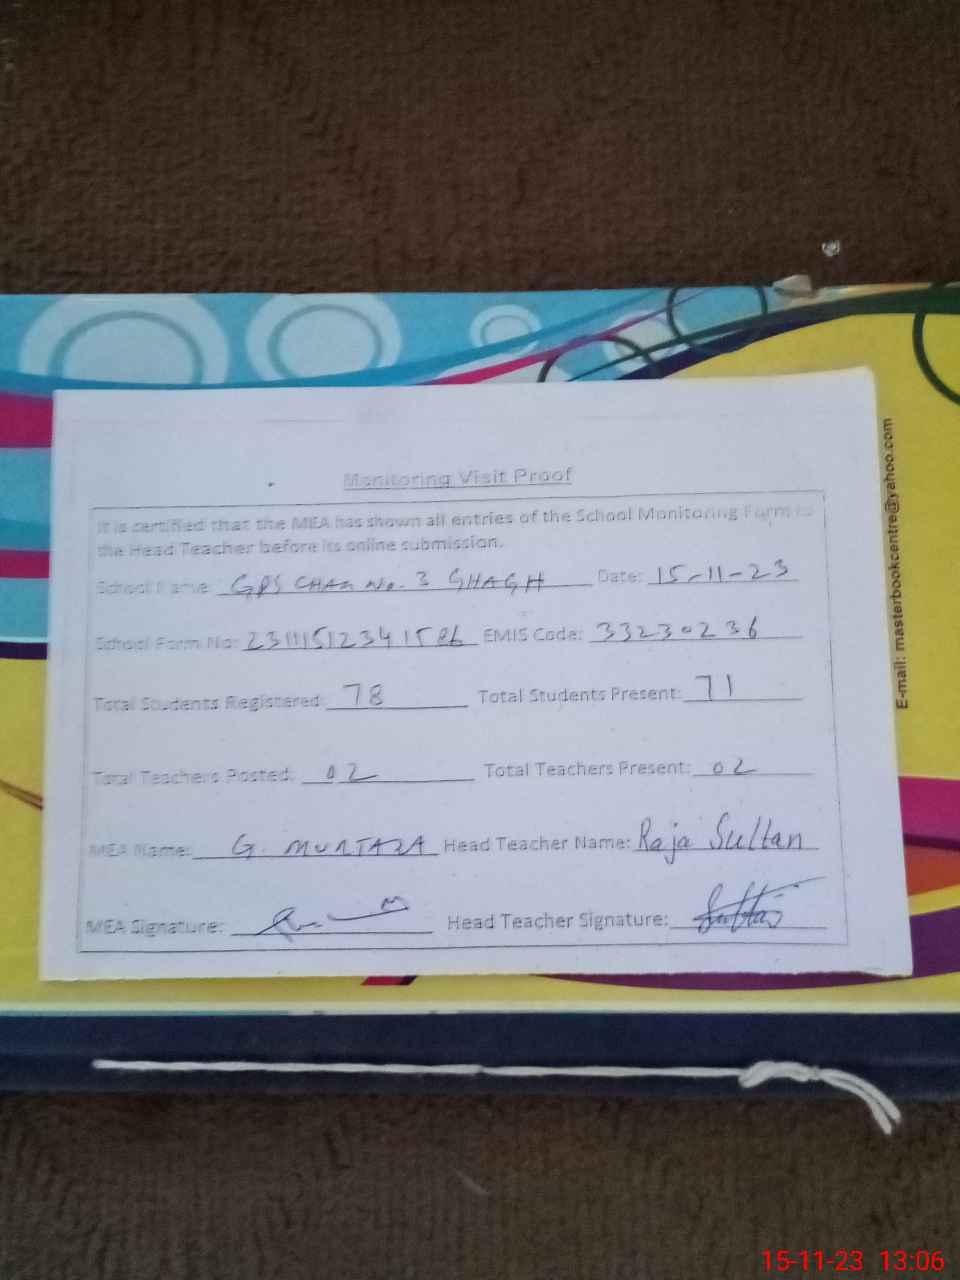 Monitoring Visit Proof
It is certified that the MEA has shown all entries of the School Monitoring Form to
the Head Teacher before its online submission.
School Name: GPS CHAK No. 3 GHAGH Date: 15-11-23
School Form No: EMIS Code: 33230236
Total Students Registered: 78 Total Students Present: 71
Total Teachers Posted: 02 Total Teachers Present: 02
MEA Name: G. MURTAZA Head Teacher Name: Raja Sultan
MEA Signature: Head Teacher Signature:
E-mail: masterbookcentre@yahoo.com
15-11-23 13:06